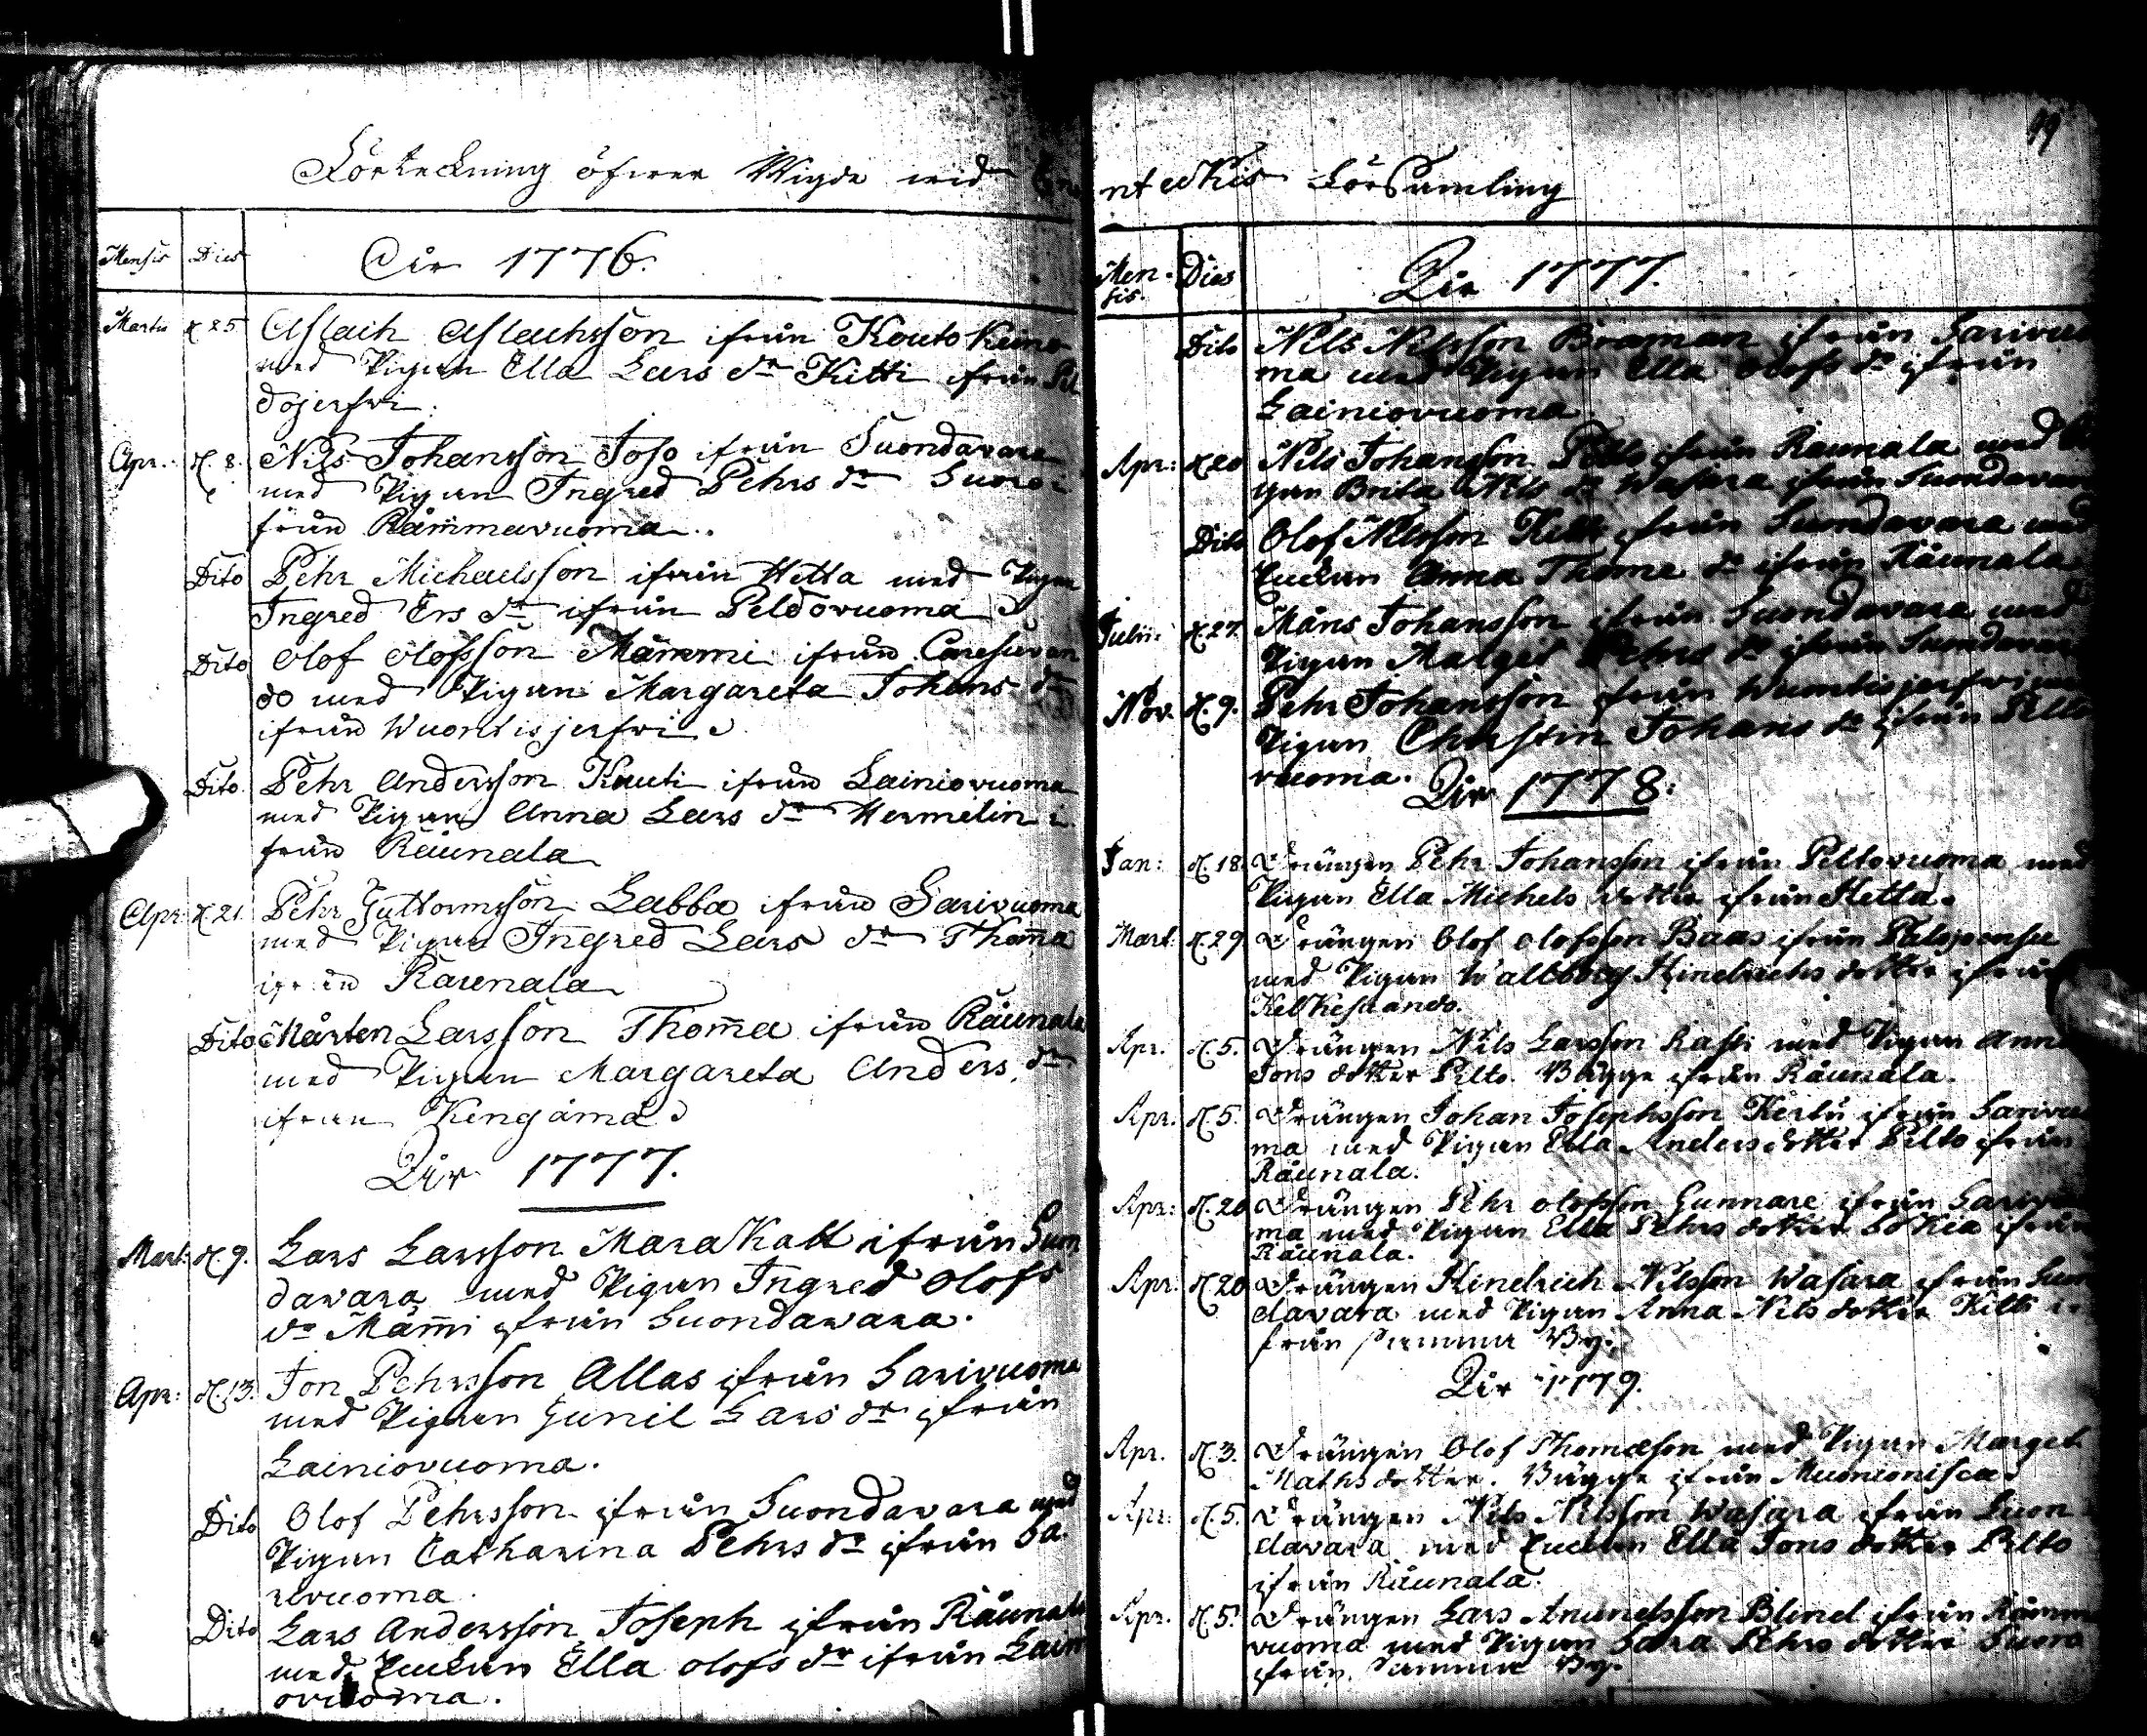 Förteckning öfwer Wigde wid
Mensis Dies
Åir 1776.
Martii d. 25 Aslach Aslachsson ifrån Koutokeino
med Pigan Ella Lars dr Kitti ifrån Pel
dojerfwi.
Apr. d. 8. Nils Johansson Joso ifrån Suondavara
med Pigan Ingred Pehrs dr Suoro i
från Råmmavuoma.
Dito Pehr Michaelsson ifrån Hetta med Pigan
Ingred Ers dr ifrån Peldovuoma
Dito Olof Olofsson Mämmi ifrån Caresuvan
do med Pigan Margareta Johans dr
ifrån Wuontisjerfwi
Dito Pehr Andersson Kauti ifrån Lainiovuoma
med Pigan Anna Lars dr Hermelin i
från Råunala
Apr. d. 21. Pehr Guttormsson Labba ifrån Sarivuoma
med Pigan Ingred Lars dr Thom̄a
ifrån Raunala
Dito Mårten Larsson Thom̄a ifrån Råunala
med Pigan Margareta Anders dr
ifrån Kengämä
Åir 1777.
Mart: d. 9. Lars Larsson MaraKatt ifrån Suon
davara med Pigan Ingred Olofs
dr Mäm̄i ifrån Suondavara.
Apr: d. 13. Jon Pehrsson Allas ifrån Sarivuoma
med Pigan Gunil Lars dr ifrån
Lainiovuoma.
Dito Olof Pehrsson ifrån Suondavara med
Pigan Catharina Pehrs dr ifrån Sa
rivuoma.
Dito Lars Andersson Joseph ifrån Råunala
med Enckan Ella Olofs dr ifrån Laini
ovuoma.
49
ntekis Församling
Men-
sis. Dies
Åir 1777.
Dito Nils Nilsson Braman ifrån Sarivuo
ma med Pigan Ella Olofs dr ifrån
Lainiovuoma
Apr: d. 20 Nils Johansson Pelto ifrån Raunala med Pi
gan Brita Nils dr Wasara ifrån Suondavara
Dito Olof Nilsson Kitti ifrån Suondavara med
Enckan Anna Thome dr ifrån Råunala
Julii: d. 27. Måns Johansson ifrån Suondavara med
Pigan Marget Pehrs dr ifrån Suondavara
Nov. d. 9. Pehr Johansson ifrån Wuontisjerfwi med
Pigan Christin Johans dr ifrån Pelto
vuoma.
Åir 1778:
Jan: d. 18. Drängen Pehr Johansson ifrån Peltovuoma med
Pigan Ella Michels dotter ifrån Hetta.
Mart: d. 29 Drängen Olof Olofsson Baas ifrån
med Pigan Wallborg Hindrichs dotter ifrån
Apr. d. 5. Drängen Nils Larsson Rasti med Pigan Anna
Jons dotter Pelto. Bägge ifrån Råunala.
Apr: d. 5. Drängen Johan Josephsson Kertu ifrån Sarivuo
ma med Pigan Ella Anders dotter Pelto ifrån
Råunala.
Apr: d. 20 Drängen Pehr Olofsson Gunnare ifrån Sarivuo
ma med Pigan Ella Pehrs dotter Sokia ifrån
Råunala.
Apr: d. 20 Drängen Hindrich Nilsson Wasara ifrån Suon
davara med Pigan Anna Nils dotter Kitti i
från samma By.
Åir 1779.
Apr. d. 3. Drängen Olof Thomæson med Pigan Marget
Maths dotter. Bägge ifrån Muonionisca
Apr: d. 5. Drängen Nils Nilsson Wasara ifrån Suon
davara med Enckan Ella Jons dotter Pelto
ifrån Råunala.
Apr. d. 5. Drängen Lars Amundsson Blind ifrån Råmma
vuoma med Pigan Sara Pehrs dotter Suoro
ifrån samma By.